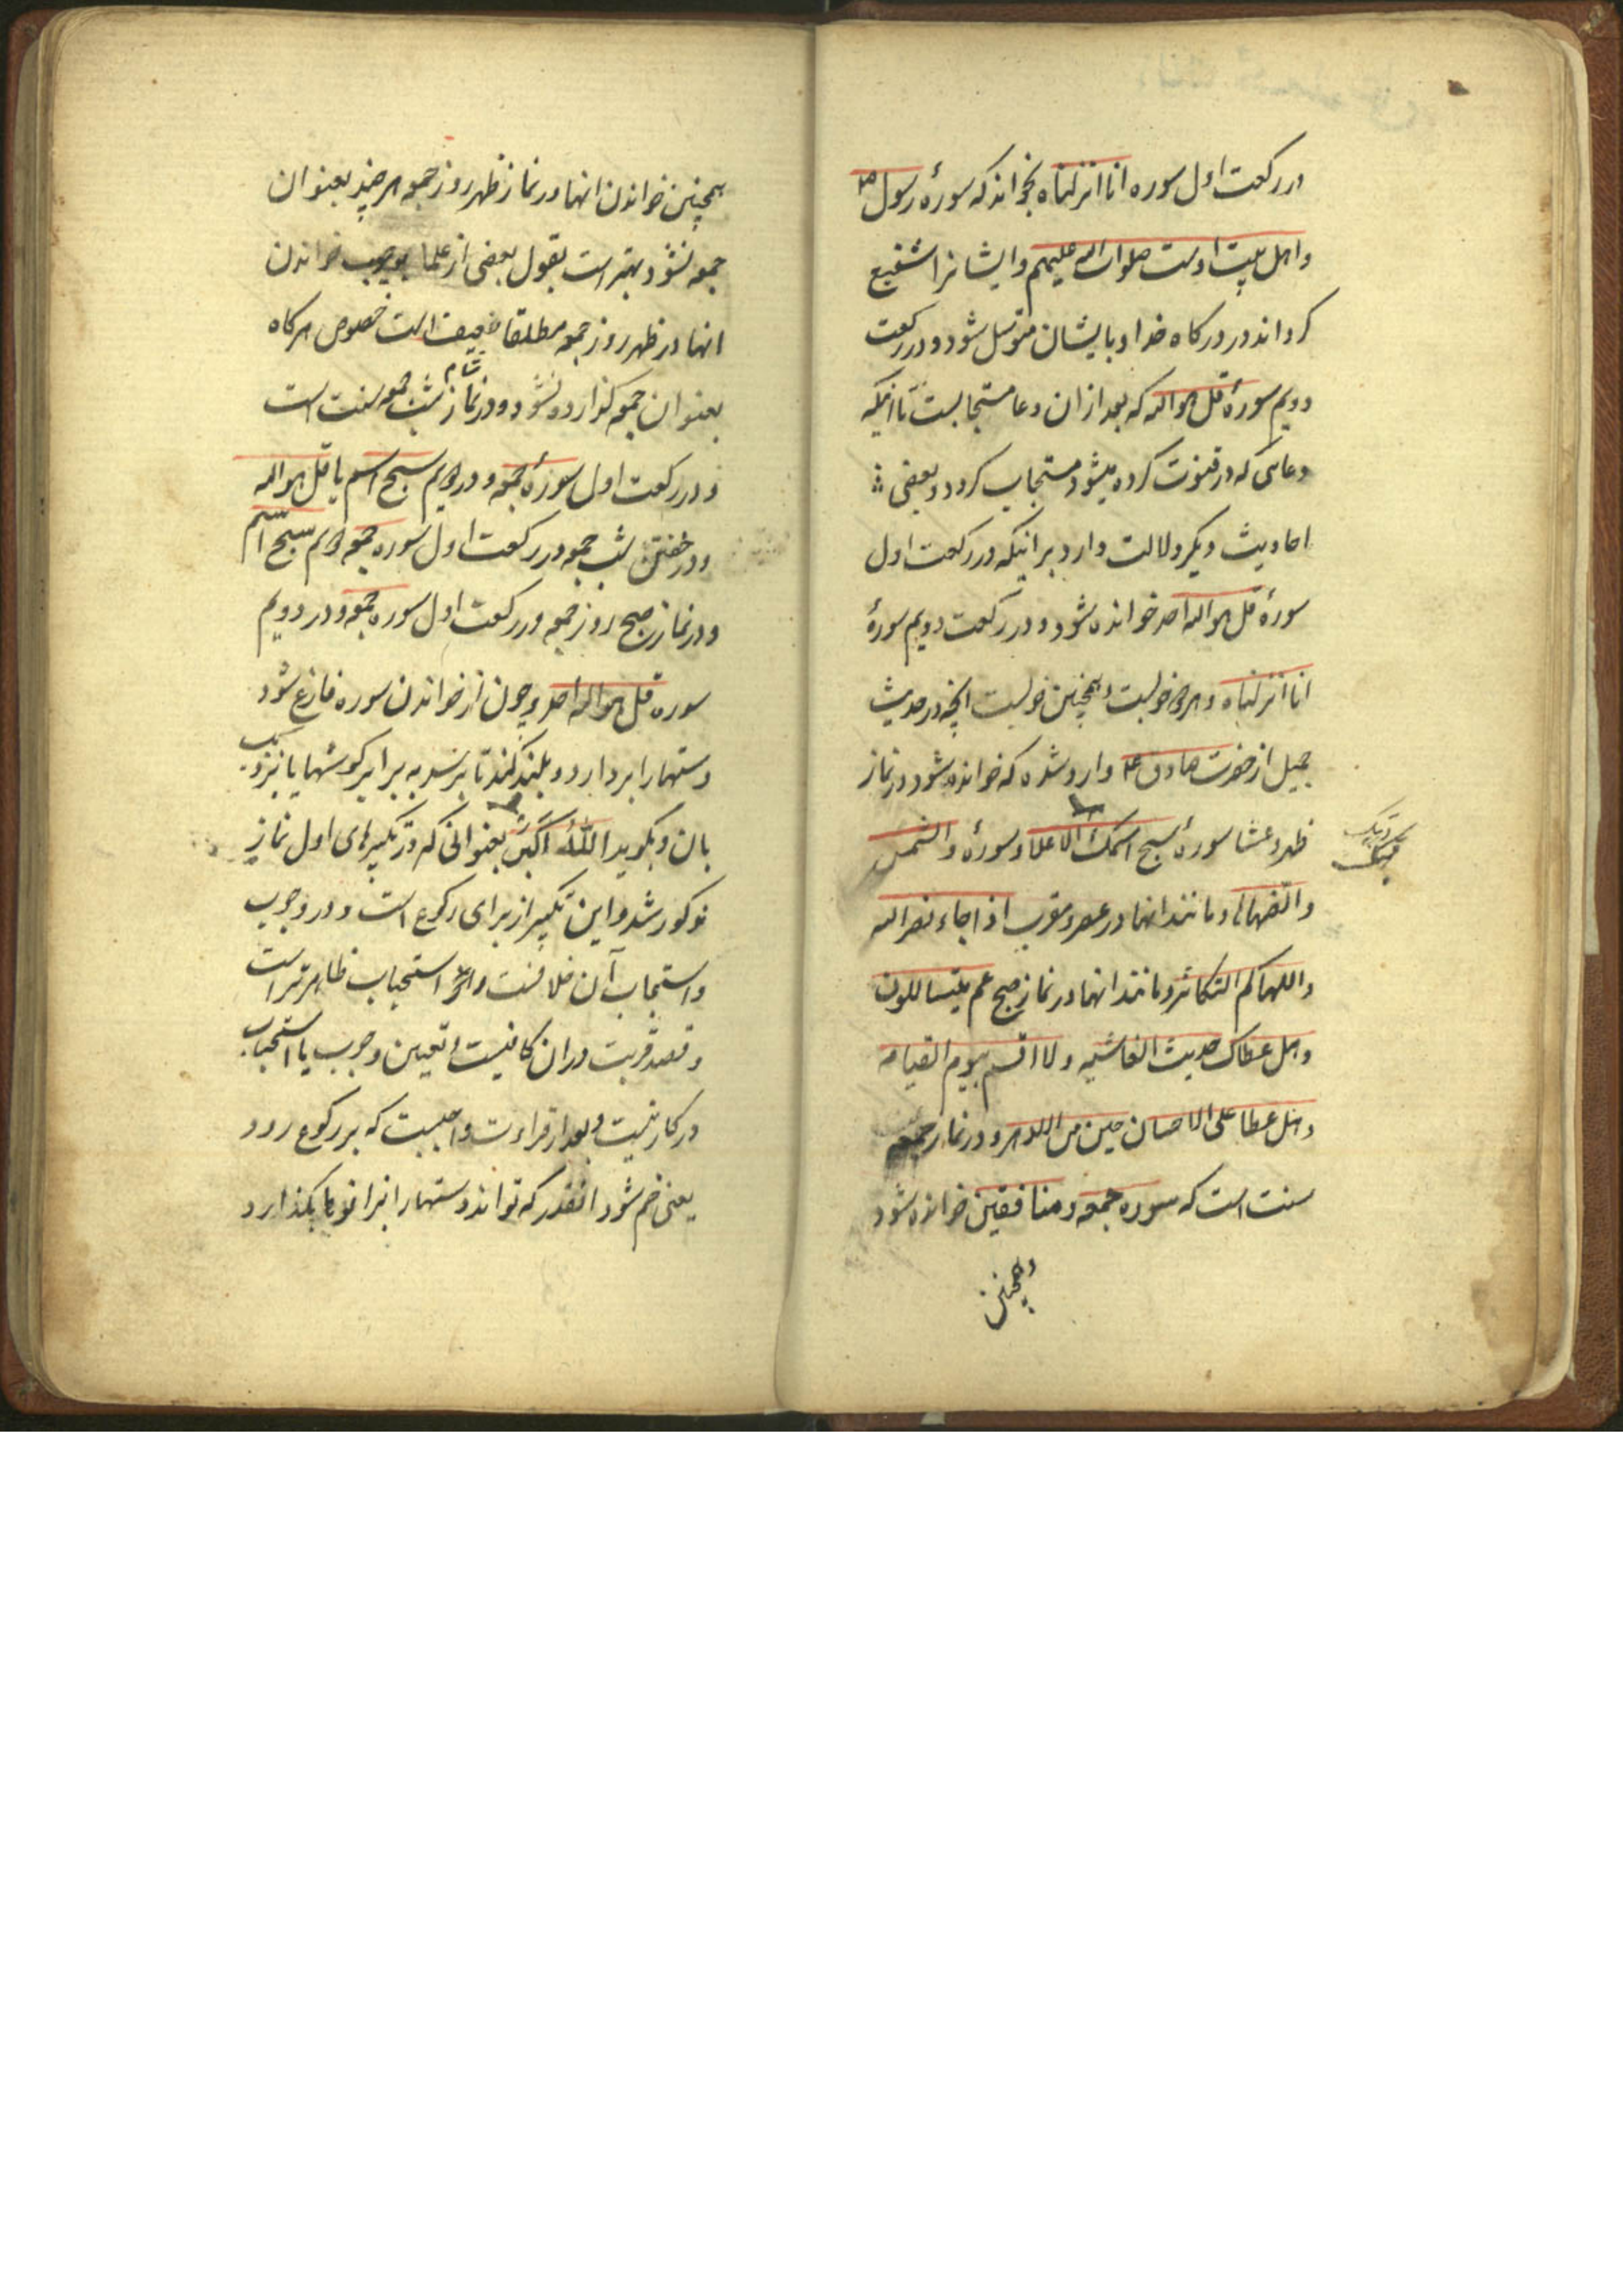 در رکعت اول سوره انا انزلناه بخواند که سورهٔ رسول ص
و اهل بیت اوست صلوات الله علیهم و ایشانرا شفیع
کرداند در درکاه خدا و بایشان متوسل شود و در رکعت
دویم سورهٔ قل هو الله که بعد از ان دعا مستجابست تا انکه
دعائی که در قنوت کرده میشود مستجاب کردد و بعضی
احادیث دیکر دلالت دارد بر انیکه در رکعت اول
سورهٔ قل هو الله احد خوانده شود و در رکعت دویم سورهٔ
انا انزلناه و هر دو خوبست و همچنین خوبست انچه در حدیث
جمیل از حضرت صادق ع وارد شده که خوانده شود در نماز
ظهر و عشا سورهٔ سبح اسمک الاعلا و سورهٔ والشمس
ربک
و مانند انها در عصر و مغرب اذا جاء نصر الله
و اللهاکم التکاثر و مانند انها در نماز صبح عم یتساللون
و هل عطاک حدیث الغاشیه و لا اقسم بیوم القیامه
و هل عطا علی الاحسان حین من الدهر و در نماز جمعه
سنت است که سوره جمعه و منافقین خوانده شود
و همچنین
همچنین خواندن انها در نماز ظهر روز جمعه هر چند بعنوان
جمعه نشود بهتر است بقول بعضی از علما بوجوب خواندن
انها در ظهر روز جمعه مطلقا ضعیف است خصوص هرکاه
بعنوان جمعه کذارده نشود و در نماز شام شب جمعه سنت است
و در رکعت اول سورهٔ جمعه و در دویم سبح اسم یا قل هو الله
و در خفتن شب جمعه در رکعت اول سوره جمعه دویم سبح اسم
و در نماز صبح روز جمعه در رکعت اول سوره جمعه و در دویم
سوره قل هو الله احد و چون از خواندن سوره فارغ شود
دستها را بردارد و بلند کند تا برسد به برابر کوشها یا نزدیک
بان و بکوید اللهُ اکبر بعنوانی که در تکبیرهای اول نماز
مذکور شد و این تکبیر از برای رکوع است و در وجوب
و استحباب آن خلافست و استحباب ظاهرتر است
و قصد قربت در ان کافیست و تعیین وجوب یا استحباب
در کار نیست و بعد از قراءت واجبست که بر رکوع رود
یعنی خم شود انقدر که تواند دستها را بزانوها بکذارد